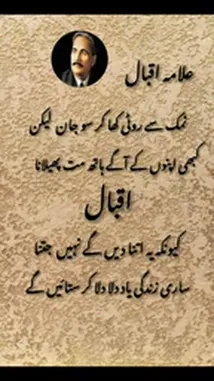 علامہ اقبال
نمک سے روٹی کھا کر سو جان لیکن
کبھی اپنوں کے آگے ہاتھ مت پھیلانا
اقبال
کیونکہ یہ اتنا دیں گے نہیں جتنا
ساری زندگی یاد دلا دلا کر ستائیں گے